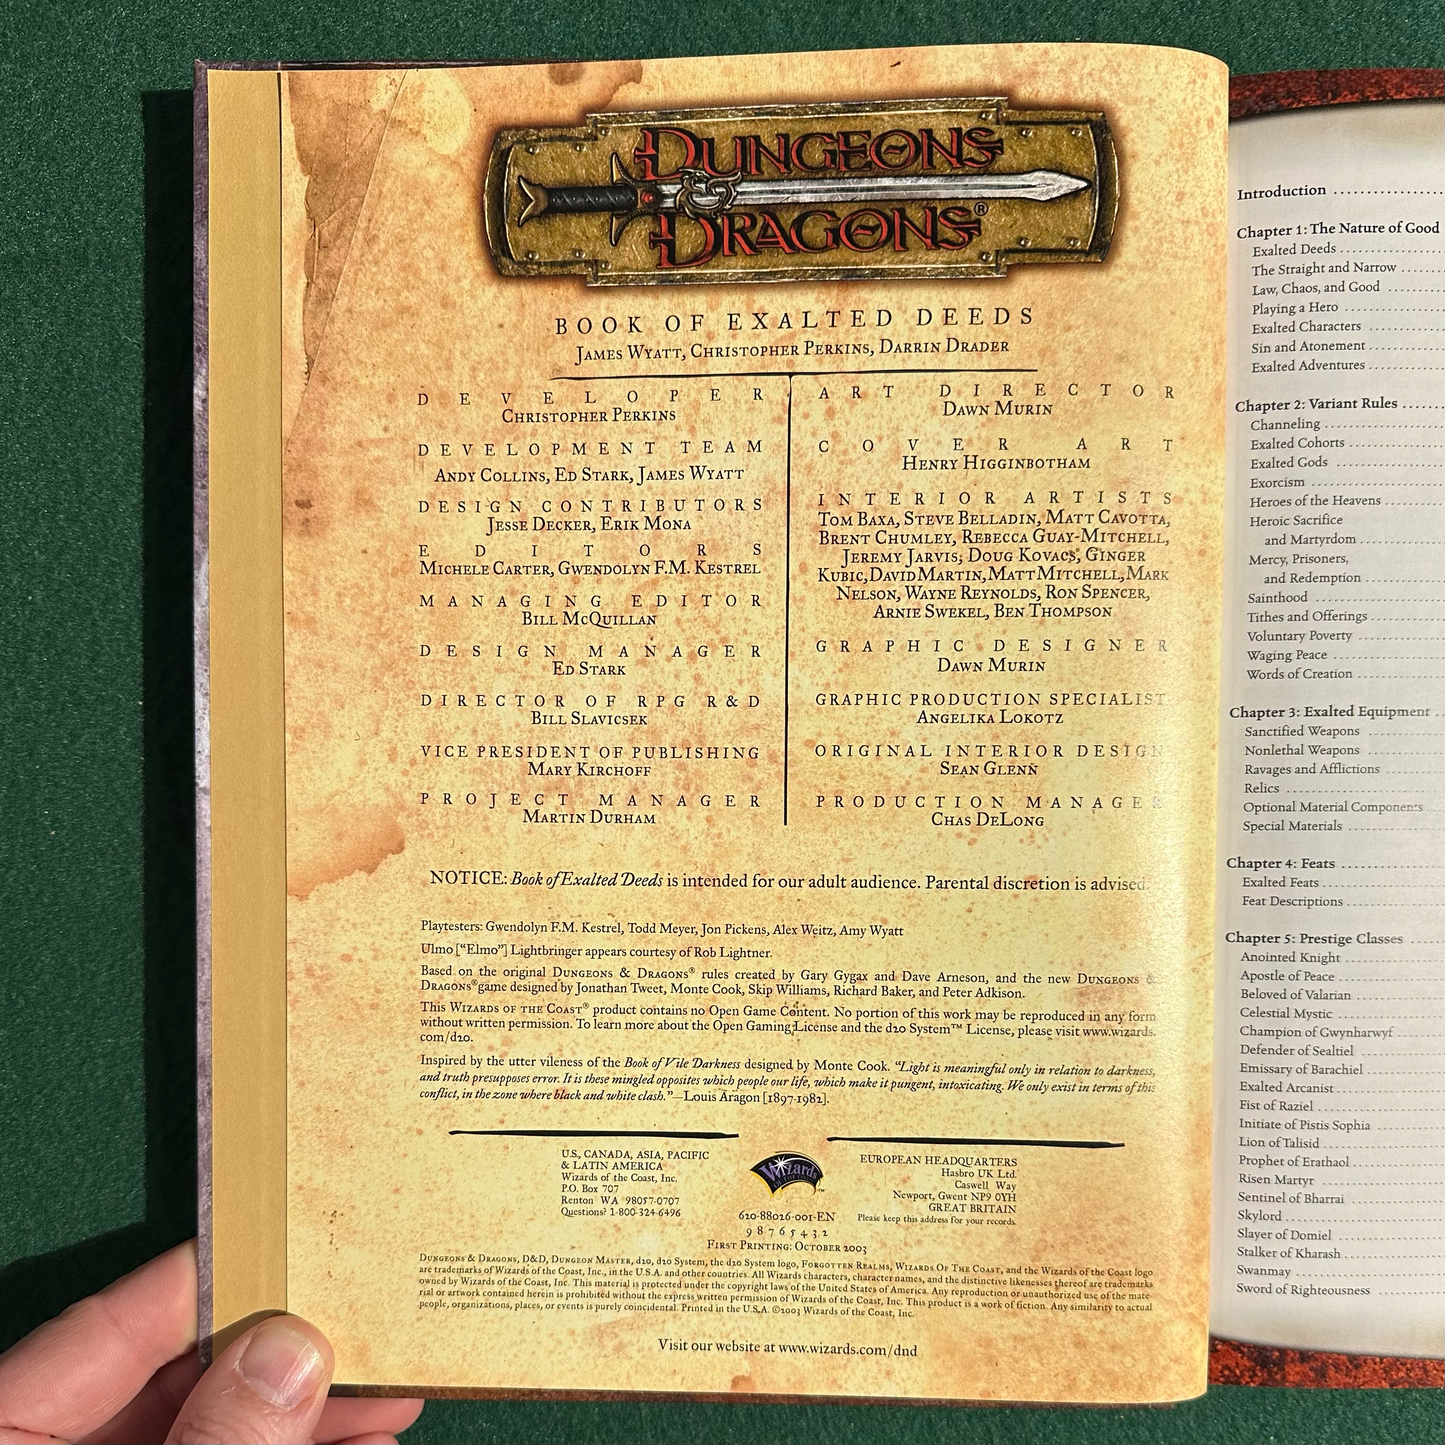 DUNGEONS
&
DRAGONS®
BOOK OF EXALTED DEEDS
JAMES WYATT, CHRISTOPHER PERKINS, DARRIN DRADER
DEVELOPER
CHRISTOPHER PERKINS
DEVELOPMENT TEAM
ANDY COLLINS, ED STARK, JAMES WYATT
DESIGN CONTRIBUTORS
JESSE DECKER, ERIK MONA
EDITORS
MICHELE CARTER, GWENDOLYN F.M. KESTREL
MANAGING EDITOR
BILL MCQUILLAN
DESIGN MANAGER
ED STARK
DIRECTOR OF RPG R&D
BILL SLAVICSEK
VICE PRESIDENT OF PUBLISHING
MARY KIRCHOFF
PROJECT MANAGER
MARTIN DURHAM
ART DIRECTOR
DAWN MURIN
COVER ART
HENRY HIGGINBOTHAM
INTERIOR ARTISTS
TOM BAXA, STEVE BELLADIN, MATT CAVOTTA,
BRENT CHUMLEY, REBECCA GUAY-MITCHELL,
JEREMY JARVIS, DOUG KOVACS, GINGER
KUBIC, DAVID MARTIN, MATT MITCHELL, MARK
NELSON, WAYNE REYNOLDS, RON SPENCER,
ARNIE SWEKEL, BEN THOMPSON
GRAPHIC DESIGNER
DAWN MURIN
GRAPHIC PRODUCTION SPECIALIST
ANGELIKA LOKOTZ
ORIGINAL INTERIOR DESIGN
SEAN GLENN
PRODUCTION MANAGER
CHAS DELONG
NOTICE: Book of Exalted Deeds is intended for our adult audience. Parental discretion is advised.
Playtesters: Gwendolyn F.M. Kestrel, Todd Meyer, Jon Pickens, Alex Weitz, Amy Wyatt
Ulmo ["Elmo"] Lightbringer appears courtesy of Rob Lightner.
Based on the original DUNGEONS & DRAGONS® rules created by Gary Gygax and Dave Arneson, and the new DUNGEONS &
DRAGONS® game designed by Jonathan Tweet, Monte Cook, Skip Williams, Richard Baker, and Peter Adkison.
This WIZARDS OF THE COAST® product contains no Open Game Content. No portion of this work may be reproduced in any form
without written permission. To learn more about the Open Gaming License and the d20 System™ License, please visit www.wizards.
com/d20.
Inspired by the utter vileness of the Book of Vile Darkness designed by Monte Cook. "Light is meaningful only in relation to darkness,
and truth presupposes error. It is these mingled opposites which people our life, which make it pungent, intoxicating. We only exist in terms of this
conflict, in the zone where black and white clash."—Louis Aragon [1897-1982].
U.S., CANADA, ASIA, PACIFIC
& LATIN AMERICA
Wizards of the Coast, Inc.
P.O. Box 707
Renton WA 98057-0707
Questions? 1-800-324-6496
Wizards
OF THE COAST
™
620-88026-001-EN
9 8 7 6 5 4 3 2
FIRST PRINTING: OCTOBER 2003
EUROPEAN HEADQUARTERS
Hasbro UK Ltd.
Caswell Way
Newport, Gwent NP9 0YH
GREAT BRITAIN
Please keep this address for your records.
DUNGEONS & DRAGONS, D&D, DUNGEON MASTER, d20, d20 System, the d20 System logo, FORGOTTEN REALMS, WIZARDS OF THE COAST, and the Wizards of the Coast logo
are trademarks of Wizards of the Coast, Inc., in the U.S.A. and other countries. All Wizards characters, character names, and the distinctive likenesses thereof are trademarks
owned by Wizards of the Coast, Inc. This material is protected under the copyright laws of the United States of America. Any reproduction or unauthorized use of the mate-
rial or artwork contained herein is prohibited without the express written permission of Wizards of the Coast, Inc. This product is a work of fiction. Any similarity to actual
people, organizations, places, or events is purely coincidental. Printed in the U.S.A. ©2003 Wizards of the Coast, Inc.
Visit our website at www.wizards.com/dnd
Introduction
Chapter 1: The Nature of Good
Exalted Deeds
The Straight and Narrow
Law, Chaos, and Good
Playing a Hero
Exalted Characters
Sin and Atonement
Exalted Adventures
Chapter 2: Variant Rules
Channeling
Exalted Cohorts
Exalted Gods
Exorcism
Heroes of the Heavens
Heroic Sacrifice
and Martyrdom
Mercy, Prisoners,
and Redemption
Sainthood
Tithes and Offerings
Voluntary Poverty
Waging Peace
Words of Creation
Chapter 3: Exalted Equipment
Sanctified Weapons
Nonlethal Weapons
Ravages and Afflictions
Relics
Optional Material Components
Special Materials
Chapter 4: Feats
Exalted Feats
Feat Descriptions
Chapter 5: Prestige Classes
Anointed Knight
Apostle of Peace
Beloved of Valarian
Celestial Mystic
Champion of Gwynharwyf
Defender of Sealtiel
Emissary of Barachiel
Exalted Arcanist
Fist of Raziel
Initiate of Pistis Sophia
Lion of Talisid
Prophet of Erathaol
Risen Martyr
Sentinel of Bharrai
Skylord
Slayer of Domiel
Stalker of Kharash
Swanmay
Sword of Righteousness